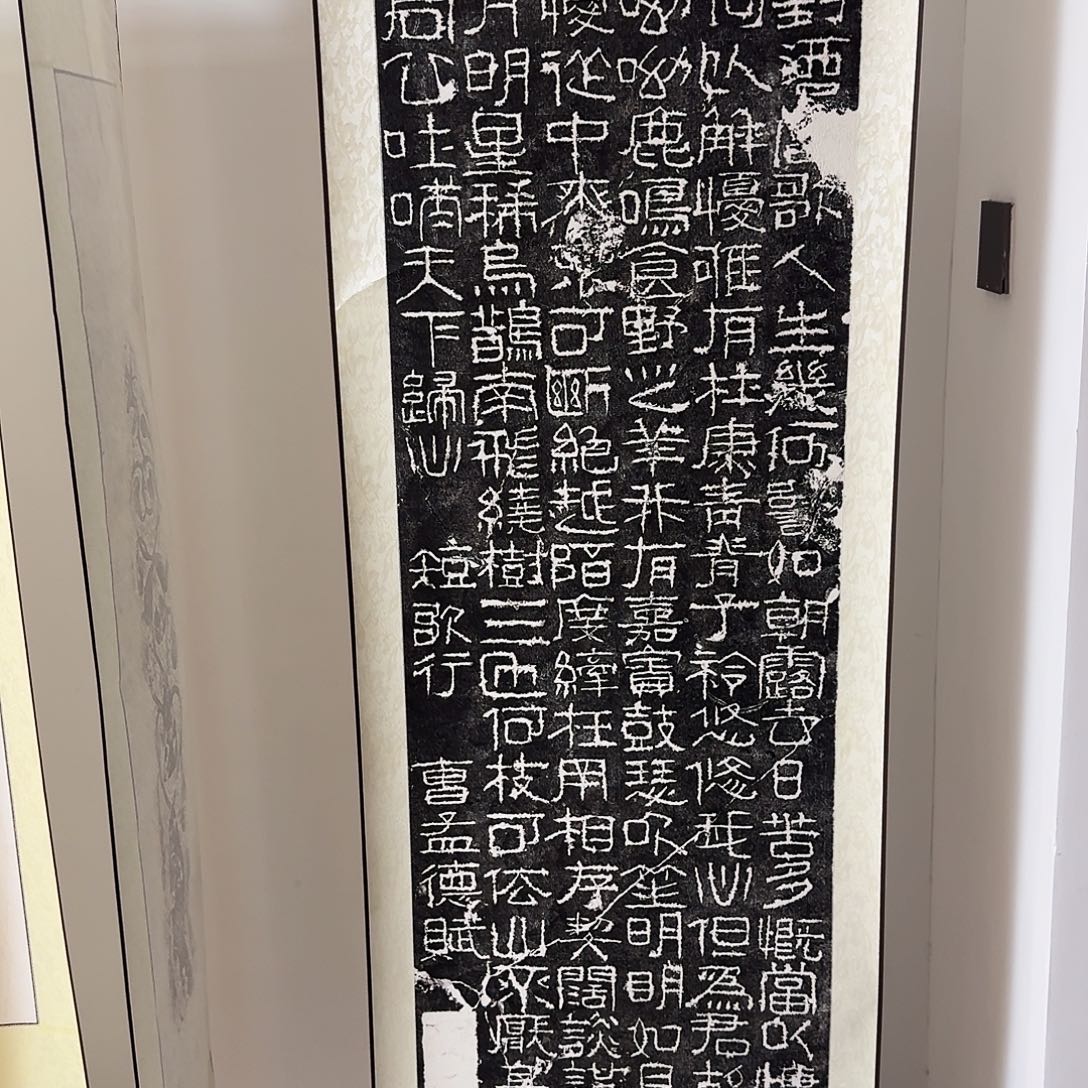 對酒當歌人生幾何譬如朝露去日苦多慨當以慷
何以解憂唯有杜康青青子衿悠悠我心但為君
呦呦鹿鳴食野之苹我有嘉賓鼓瑟吹笙明明如月
憂從中來不可斷絕越陌度阡枉用相存契闊談讌
月明星稀烏鵲南飛繞樹三匝何枝可依山不厭高
周公吐哺天下歸心 短歌行 曹孟德賦